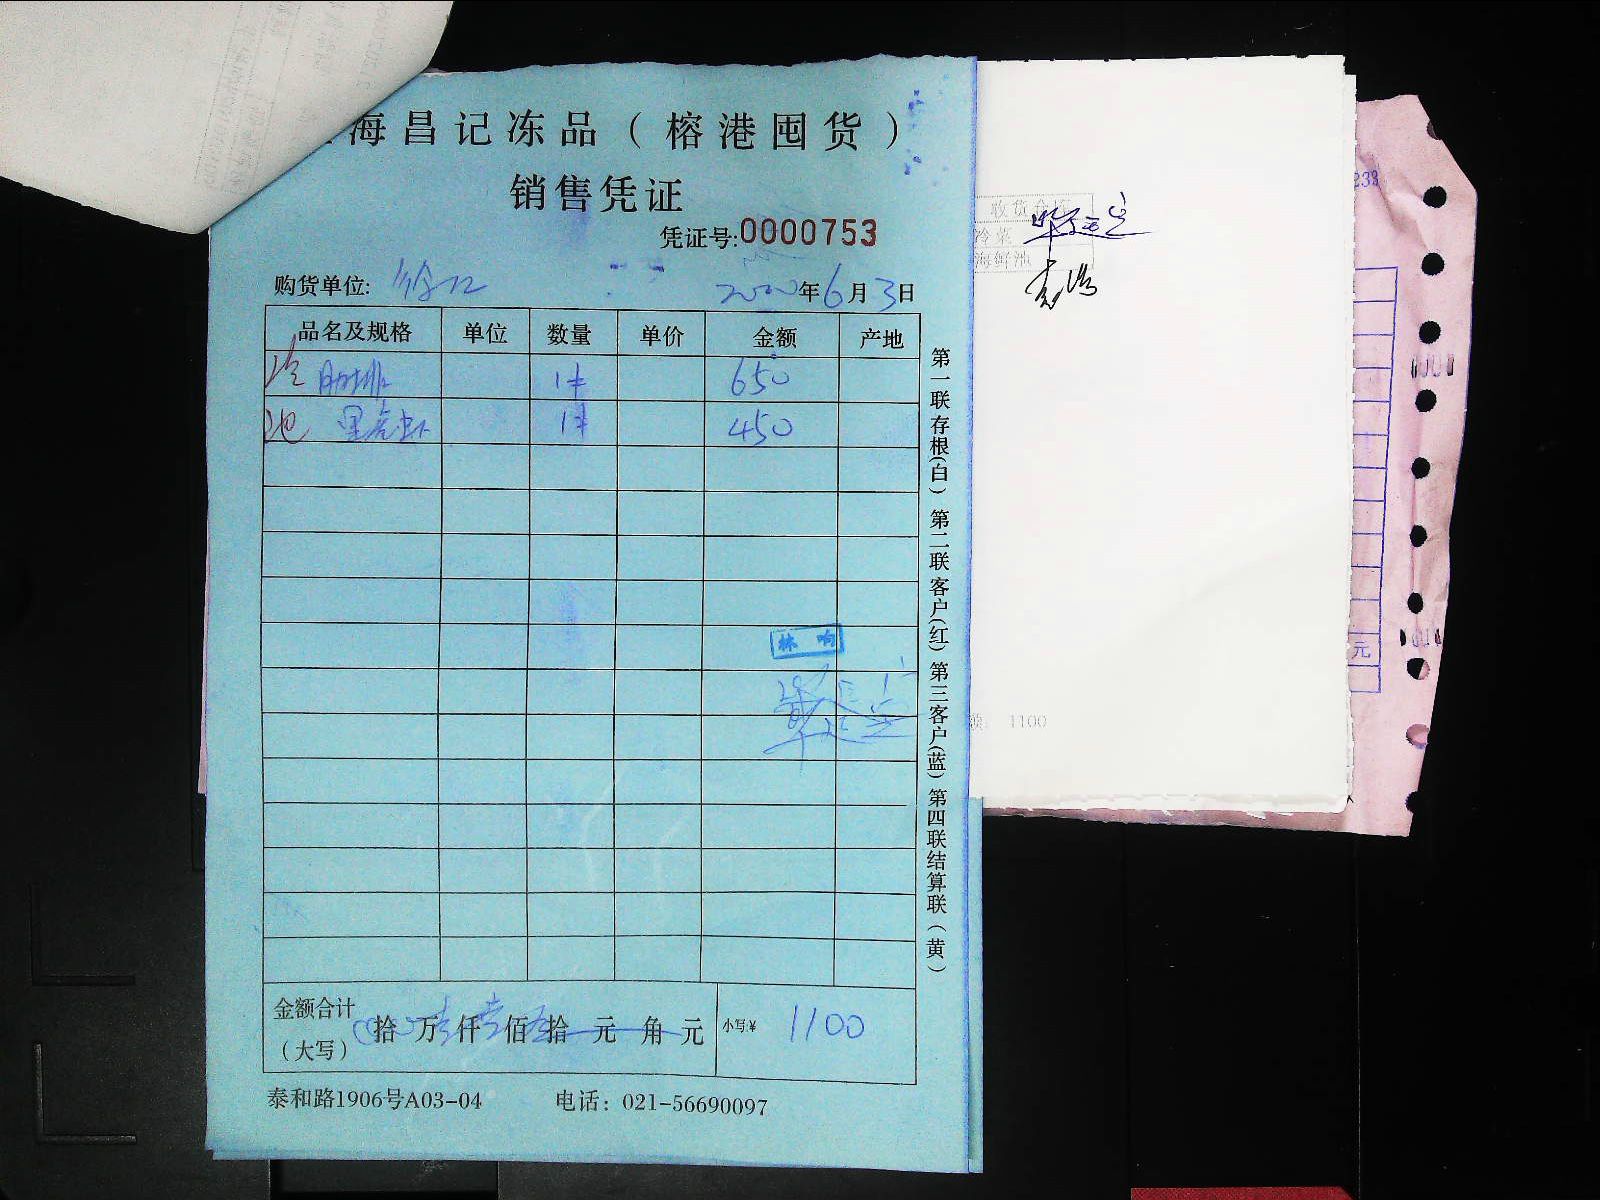 海昌记冻品（榕港囤货）
销售凭证
凭证号:0000753
购货单位: 徐汇 2020年6月3日
品名及规格 单位 数量 单价 金额 产地
冷 肋排 1件 650
池 黑虎虾 1件 450
林响
金额合计（大写） 拾 万 仟 佰 拾 元 角 元 小写¥ 1100
泰和路1906号A03-04 电话：021-56690097
第一联存根(白) 第二联客户(红) 第三客户(蓝) 第四联结算联(黄)
收货仓库
冷菜
海鲜池
1100
元